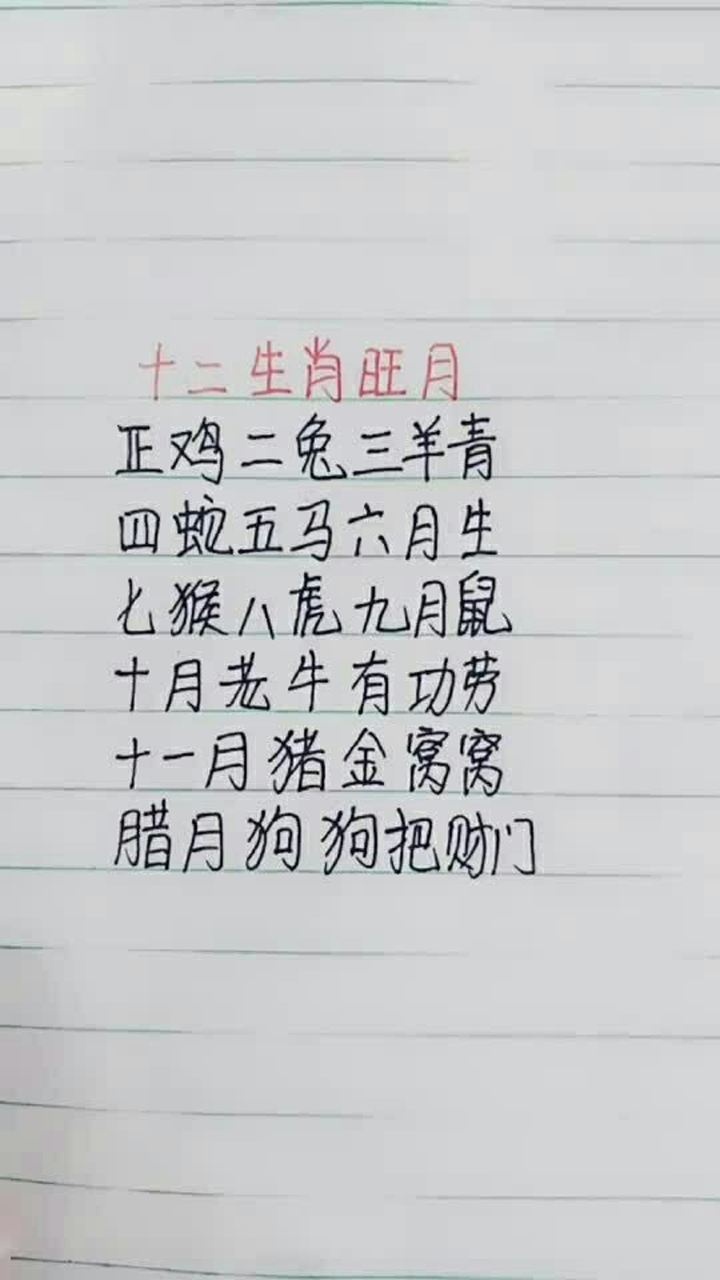 十二生肖旺月
正鸡二兔三羊青
四蛇五马六月生
七猴八虎九月鼠
十月老牛有功劳
十一月猪金窝窝
腊月狗狗把财门